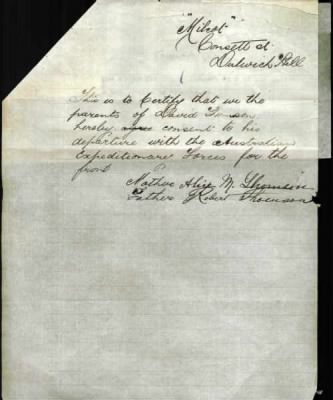 "Milrot"
Consett St
Dulwich Hill
This is to Certify that we the
parents of David Tomson
hereby consent to his
departure with the Australian
Expeditionare Forces for the
front
Mother Alice M. Thomson
Father Robert Thomson